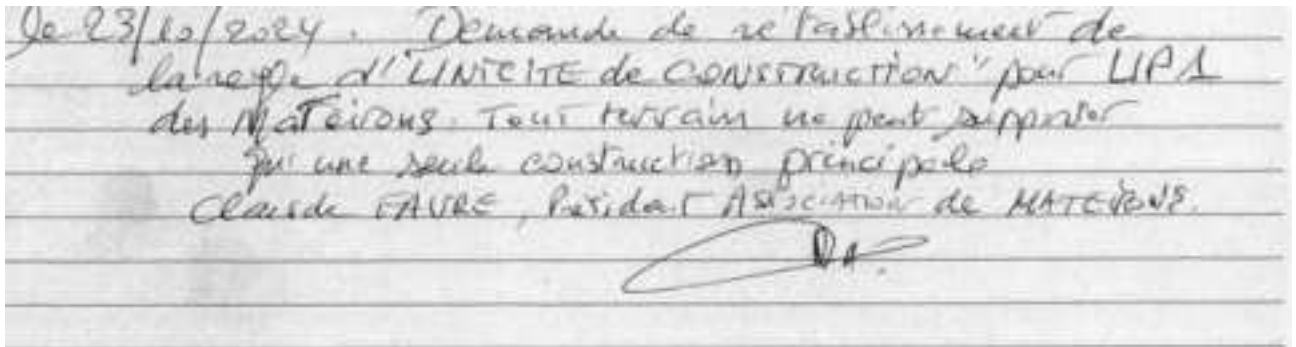 le 23/10/2024. Demande de rétablissement de
la regle d'"UNICITE de CONSTRUCTION" pour UP1
des Mateirons. Tout terrain ne peut supporter
qu'une seule construction principale
Claude FAVRE, Président Association de MATEIRONS.